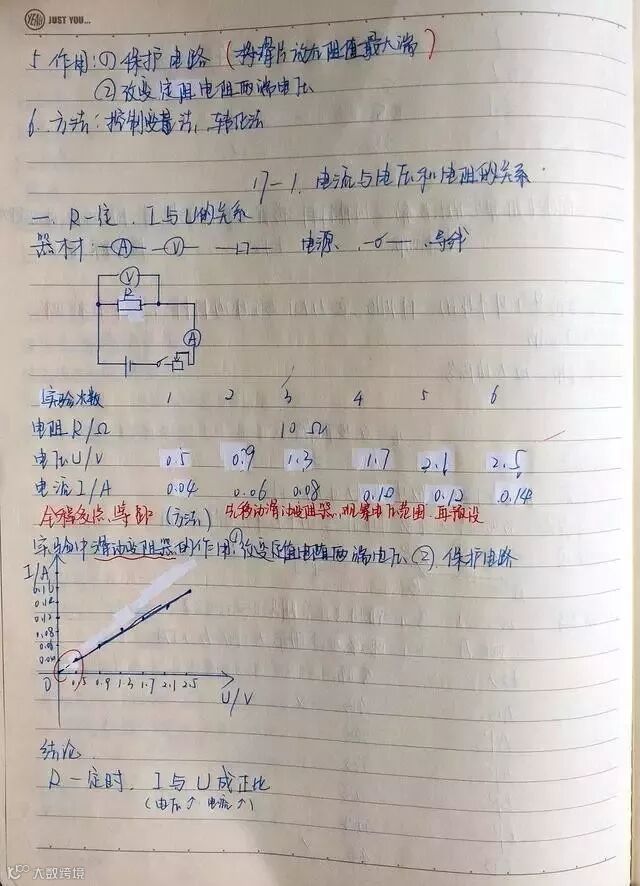 JUST YOU...
5 作用:① 保护电路 (将滑片放在阻值最大端)
② 改变定阻电阻两端电压
6. 方法:控制变量法、转化法
17-1. 电流与电压和电阻的关系.
一. R一定, I与U的关系
器材: A V 电源、 、导线
V
R
A
实验次数 1 2 3 4 5 6
电阻R/Ω 10 Ω
电压U/V 0.5 0.9 1.3 1.7 2.1 2.5
电流I/A 0.04 0.06 0.08 0.10 0.12 0.14
(方法) 先移动滑动变阻器,观察电压范围.再预设
实验中滑动变阻器的作用:①改变定值电阻两端电压 ② 保护电路
I/A
0.16
0.14
0.12
0.08
0 0.5 0.9 1.3 1.7 2.1 2.5 U/V
结论
R一定时. I与U成正比
(电压↑ 电流↑)
大数跨境